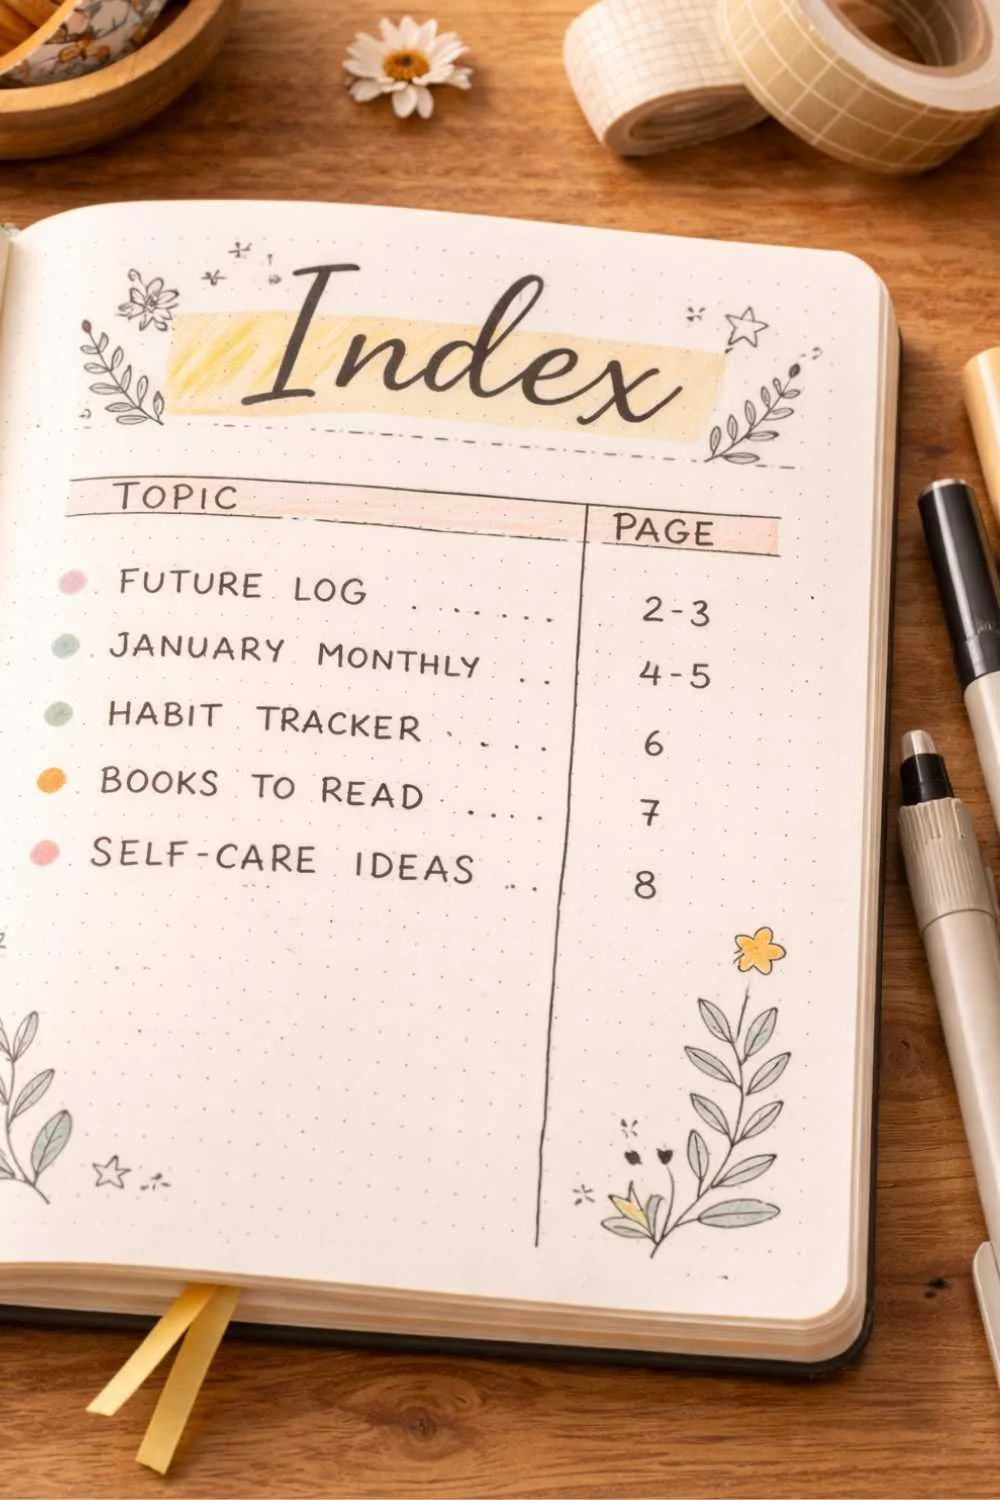 Index
TOPIC PAGE
FUTURE LOG ....... 2-3
JANUARY MONTHLY ... 4-5
HABIT TRACKER .... 6
BOOKS TO READ .... 7
SELF-CARE IDEAS .. 8